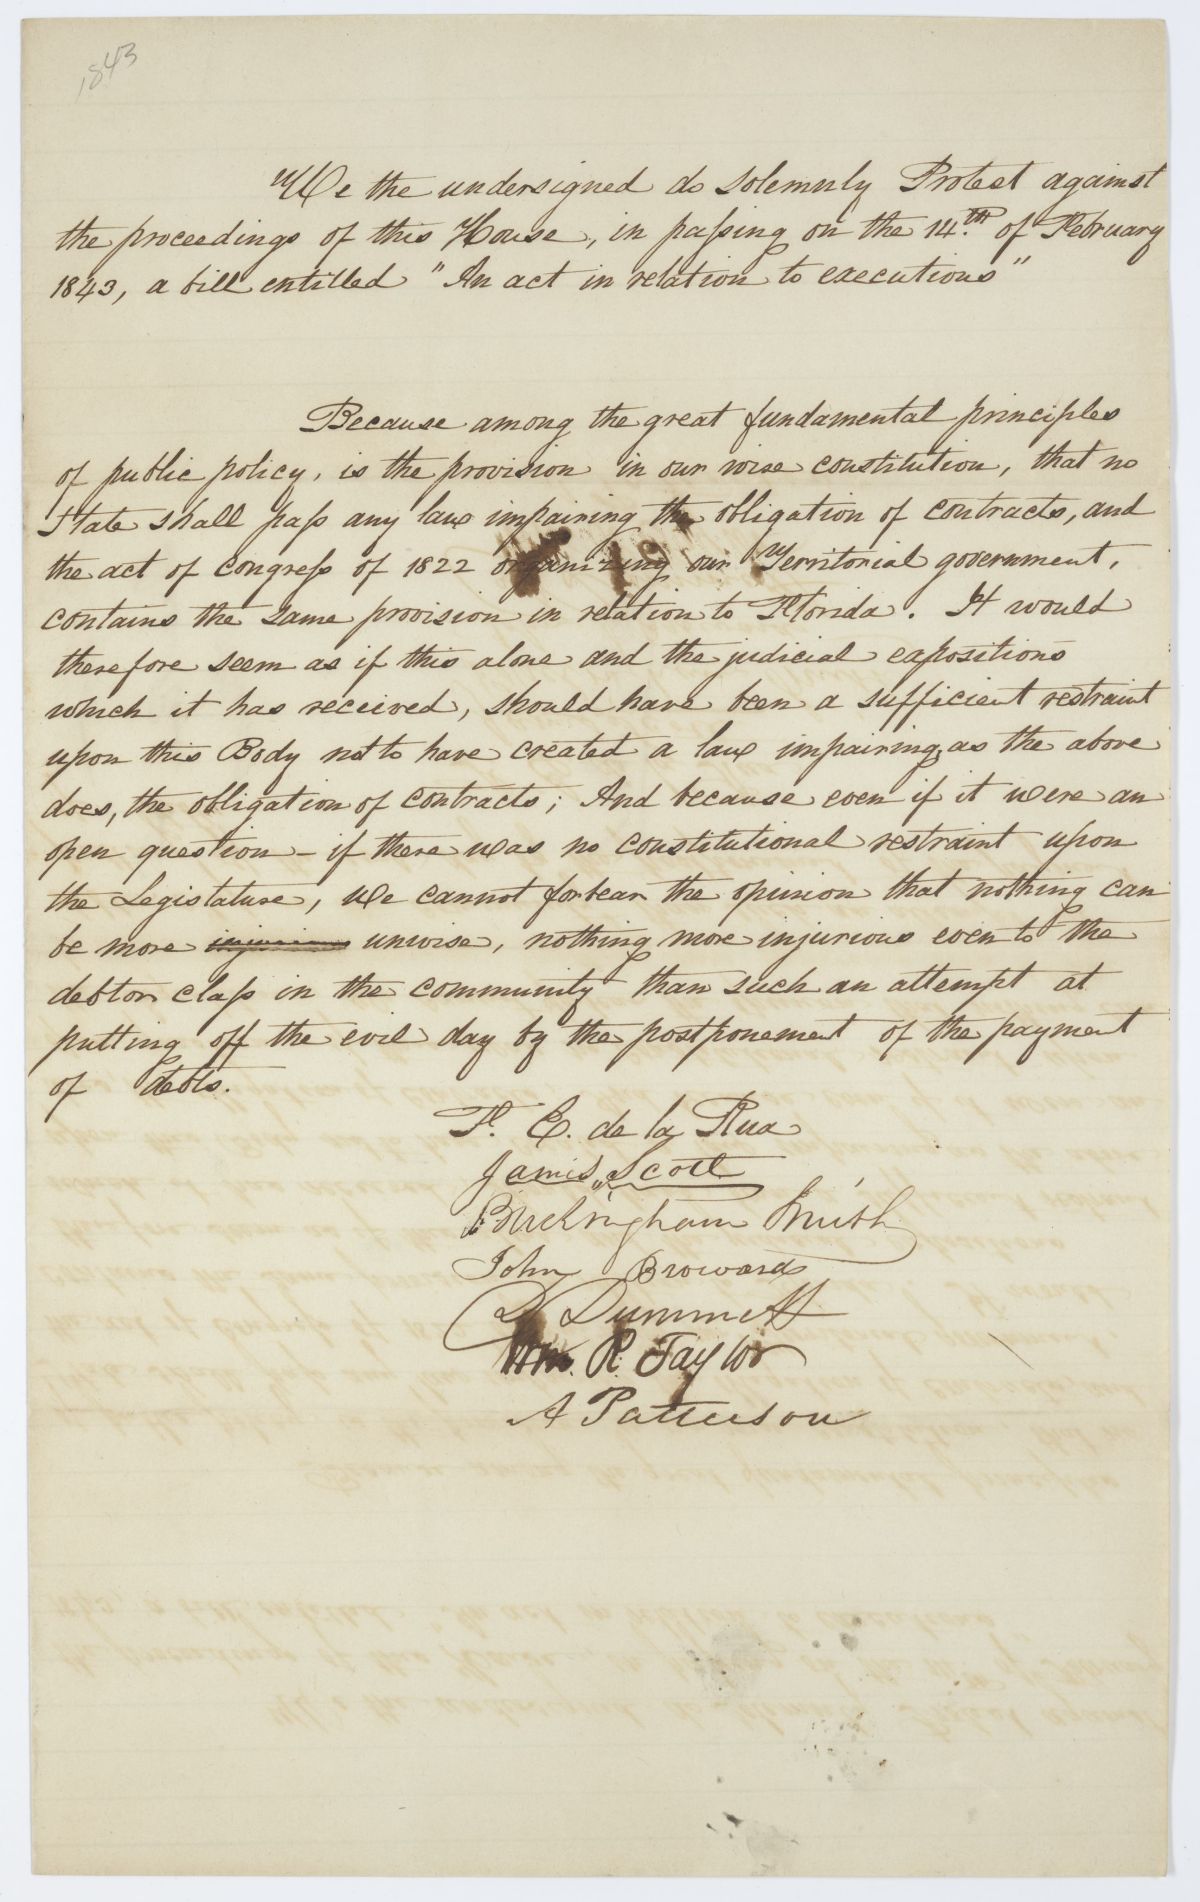 1843
We the undersigned do solemnly Protest against
the proceedings of this House, in passing on the 14th of February
1843, a bill entitled "An act in relation to executions"
Because among the great fundamental principles
of public policy, is the provision in our wise constitution, that no
State shall pass any law impairing the obligation of contracts, and
the act of Congress of 1822 organizing our Territorial government,
contains the same provision in relation to Florida. It would
therefore seem as if this alone and the judicial expositions
which it has received, should have been a sufficient restraint
upon this Body not to have created a law impairing, as the above
does, the obligation of contracts; And because even if it were an
open question – if there was no constitutional restraint upon
the Legislature, we cannot forbear the opinion that nothing can
be more injurious unwise, nothing more injurious even to the
debtor class in the community than such an attempt at
putting off the evil day by the postponement of the payment
of debts.
F. E. de la Rua
James Scott
Buckingham Smith
John Broward
D Dummett
Wm. R. Taylor
A Patterson